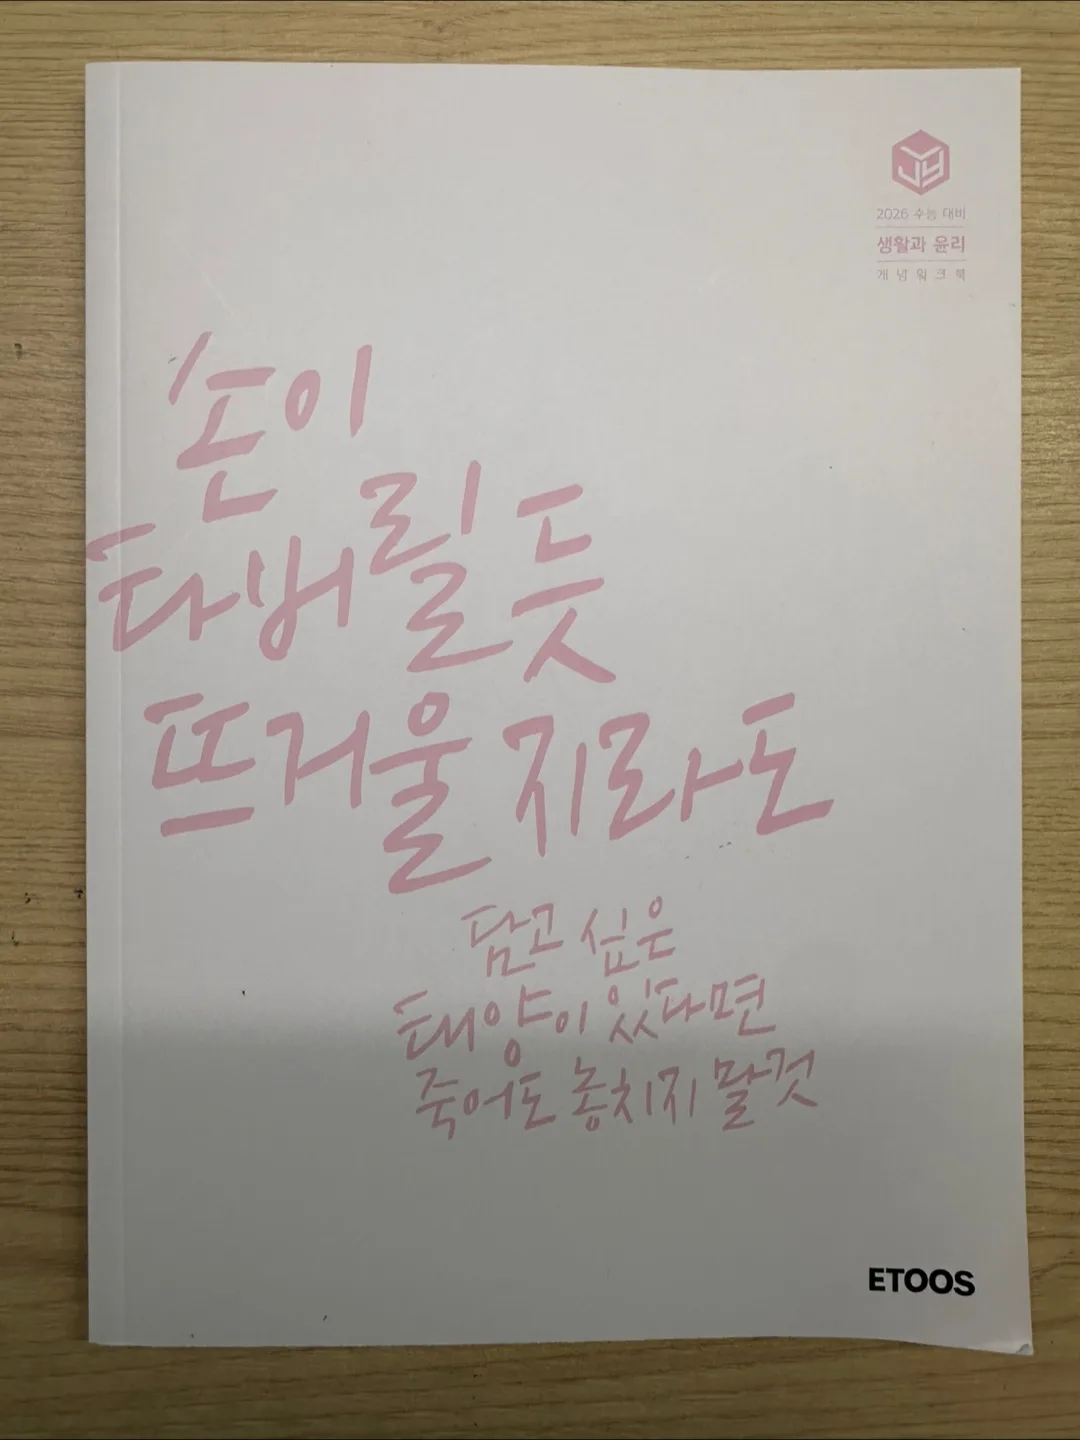 JY
2026 수능 대비
생활과 윤리
개념워크북
손이
타버릴 듯
뜨거울지라도
담고 싶은
태양이 있다면
죽어도 놓치지 말 것
ETOOS